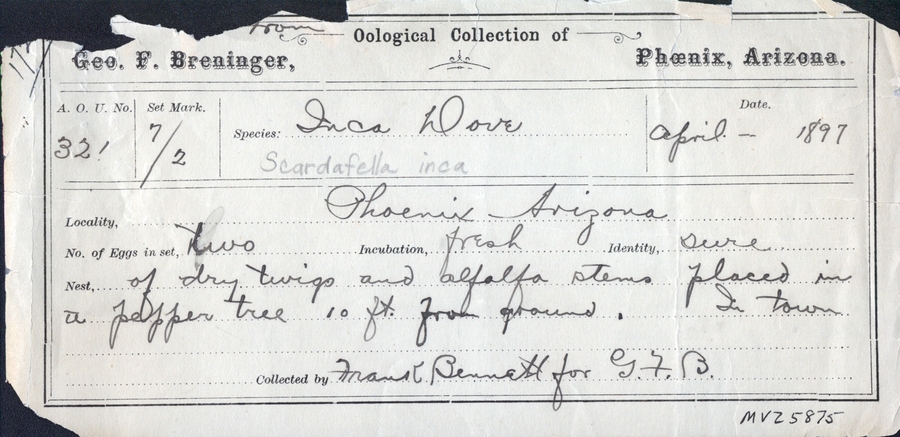 from Oological Collection of
Geo. F. Breninger, Phœnix, Arizona.
A. O. U. No. Set Mark. Date.
321 7/2 Species: Inca Dove April – 1897
Scardafella inca
Locality, Phoenix Arizona
No. of Eggs in set, two Incubation, fresh Identity, sure
Nest, of dry twigs and alfalfa stems placed in
a pepper tree 10 ft. from ground. In town
Collected by Frank Bennett for G. F. B.
MVZ 5875